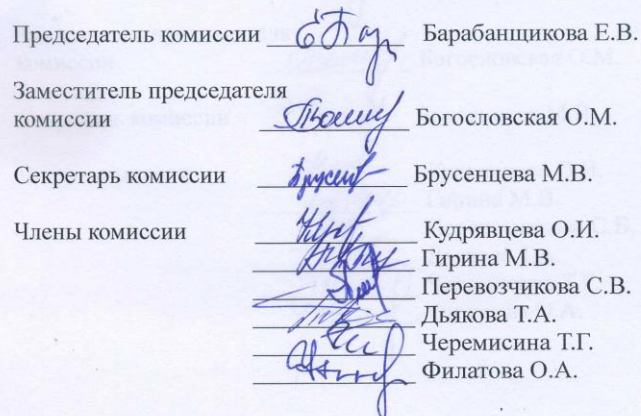 Председатель комиссии Барабанщикова Е.В.
Заместитель председателя
комиссии Богословская О.М.
Секретарь комиссии Брусенцева М.В.
Члены комиссии Кудрявцева О.И.
Гирина М.В.
Перевозчикова С.В.
Дьякова Т.А.
Черемисина Т.Г.
Филатова О.А.